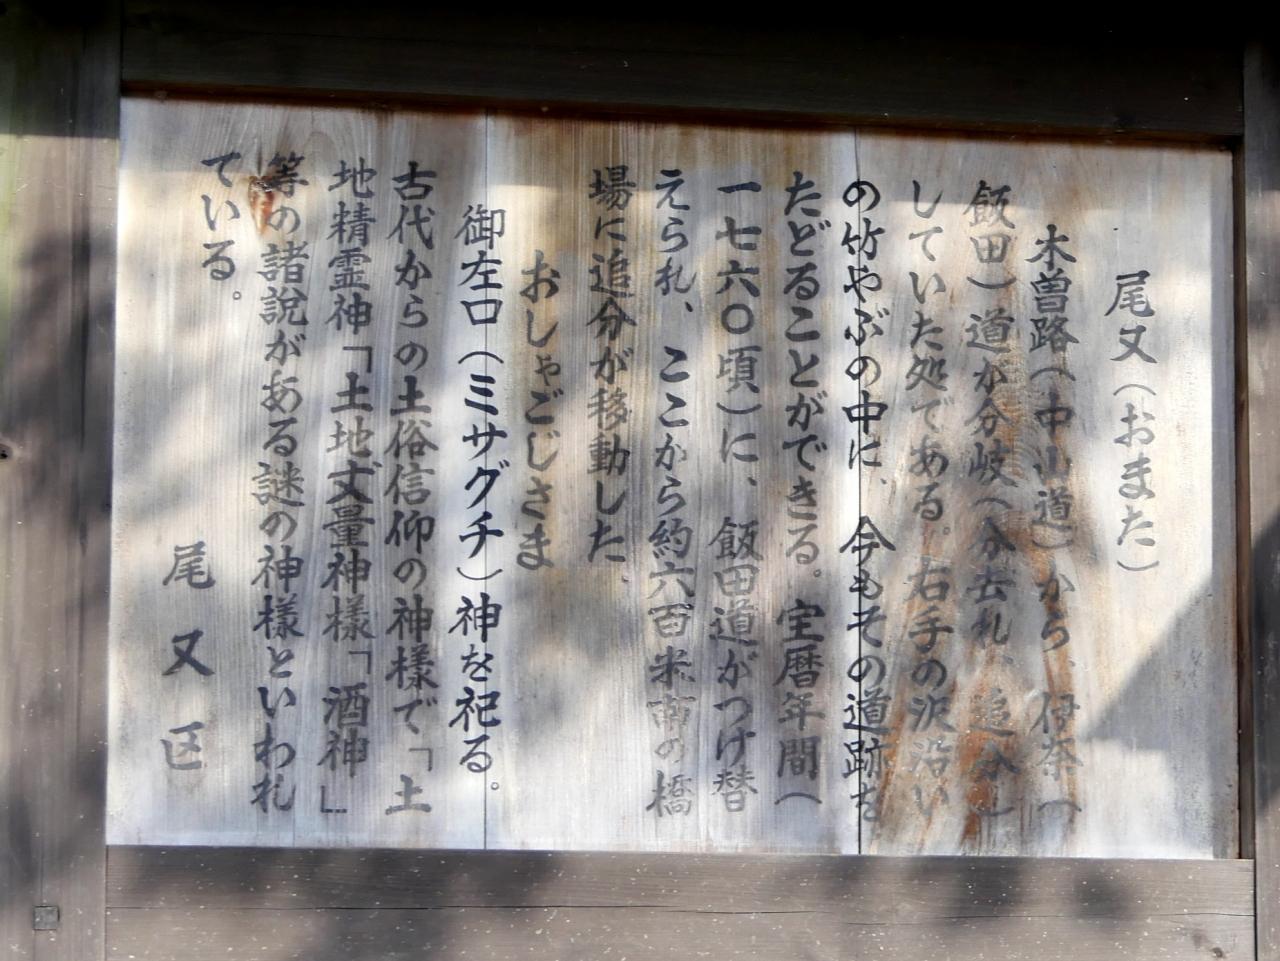 尾又(おまた)
木曽路(中山道)から、伊奈(
飯田)道が分岐(分去れ、追分)
していた処である。右手の沢沿い
の竹やぶの中に、今もその道跡を
たどることができる。宝暦年間(
一七六〇頃)に、飯田道がつけ替
えられ、ここから約六百米南の橋
場に追分が移動した。
おしゃごじさま
御左口(ミサグチ)神を祀る。
古代からの土俗信仰の神様で「土
地精霊神「土地丈量神様「酒神」
等の諸説がある謎の神様といわれ
ている。
尾又区